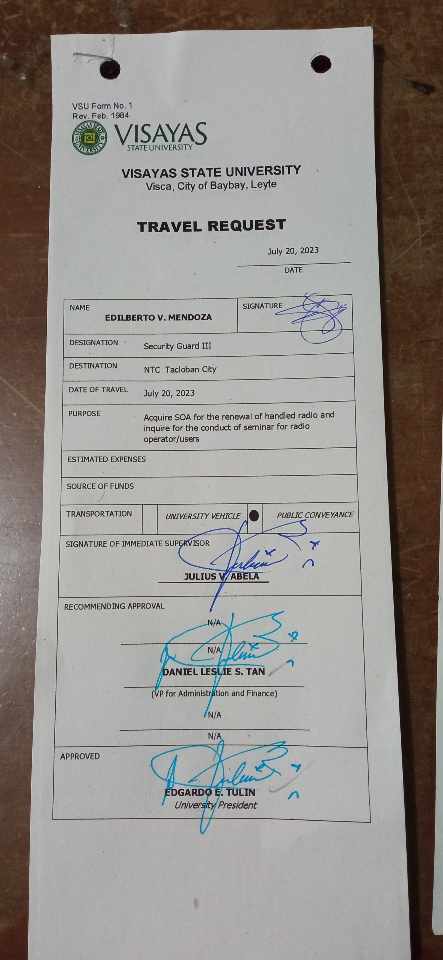 VSU Form No. 1
Rev. Feb. 1984
VISAYAS
STATE UNIVERSITY
VISAYAS STATE UNIVERSITY
Visca, City of Baybay, Leyte
TRAVEL REQUEST
July 20, 2023
DATE
NAME
EDILBERTO V. MENDOZA
SIGNATURE
DESIGNATION Security Guard III
DESTINATION NTC Tacloban City
DATE OF TRAVEL July 20, 2023
PURPOSE Acquire SOA for the renewal of handled radio and
inquire for the conduct of seminar for radio
operator/users
ESTIMATED EXPENSES
SOURCE OF FUNDS
TRANSPORTATION UNIVERSITY VEHICLE PUBLIC CONVEYANCE
SIGNATURE OF IMMEDIATE SUPERVISOR
JULIUS V. ABELA
RECOMMENDING APPROVAL
N/A
N/A
DANIEL LESLIE S. TAN
(VP for Administration and Finance)
N/A
N/A
APPROVED
EDGARDO E. TULIN
University President